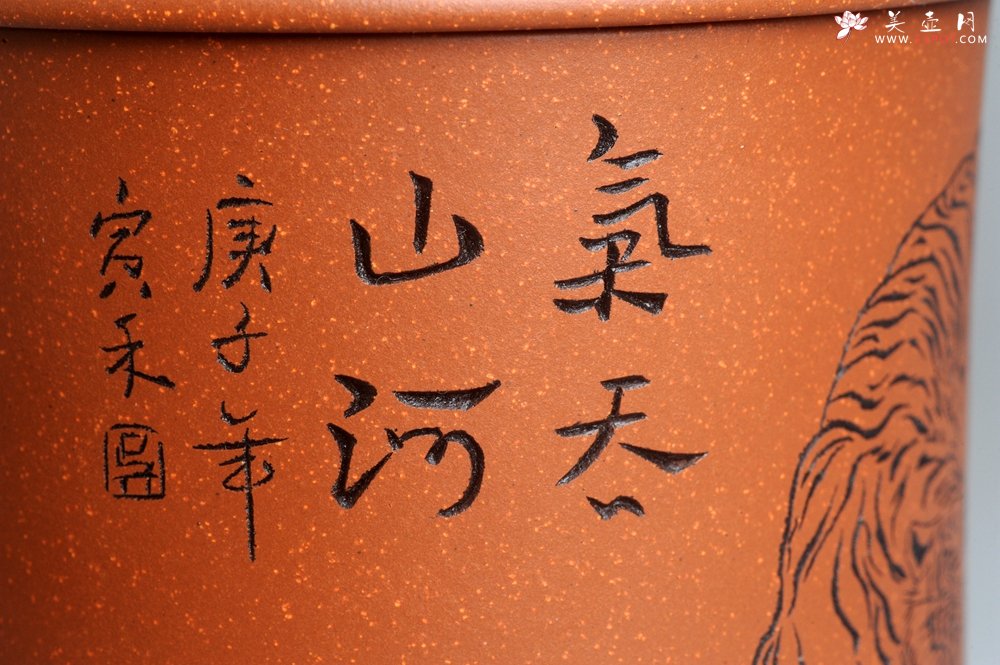 氣吞
山河
庚子年
寅禾
美壶网
WWW.
.COM